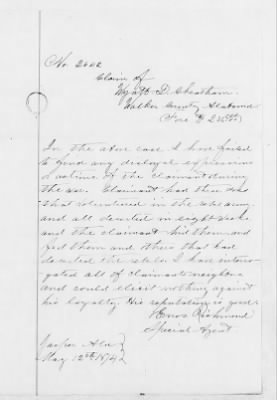 No. 2602
Claim of
Wyatt D. Cheatham
Walker County Alabama
In the above case I have failed
to find any disloyal expressions
or actions of the claimant during
the war. Claimant had three sons
that volunteered in the rebel army
and all deserted in eight weeks
and the claimant hid them and
fed them and others that had
deserted the rebels. I have interro-
gated all of claimants neighbors
and could elicit nothing against
his loyalty. His reputation is good.
Enos Richmond
Special Agent
Jasper Ala
May 12th 1874